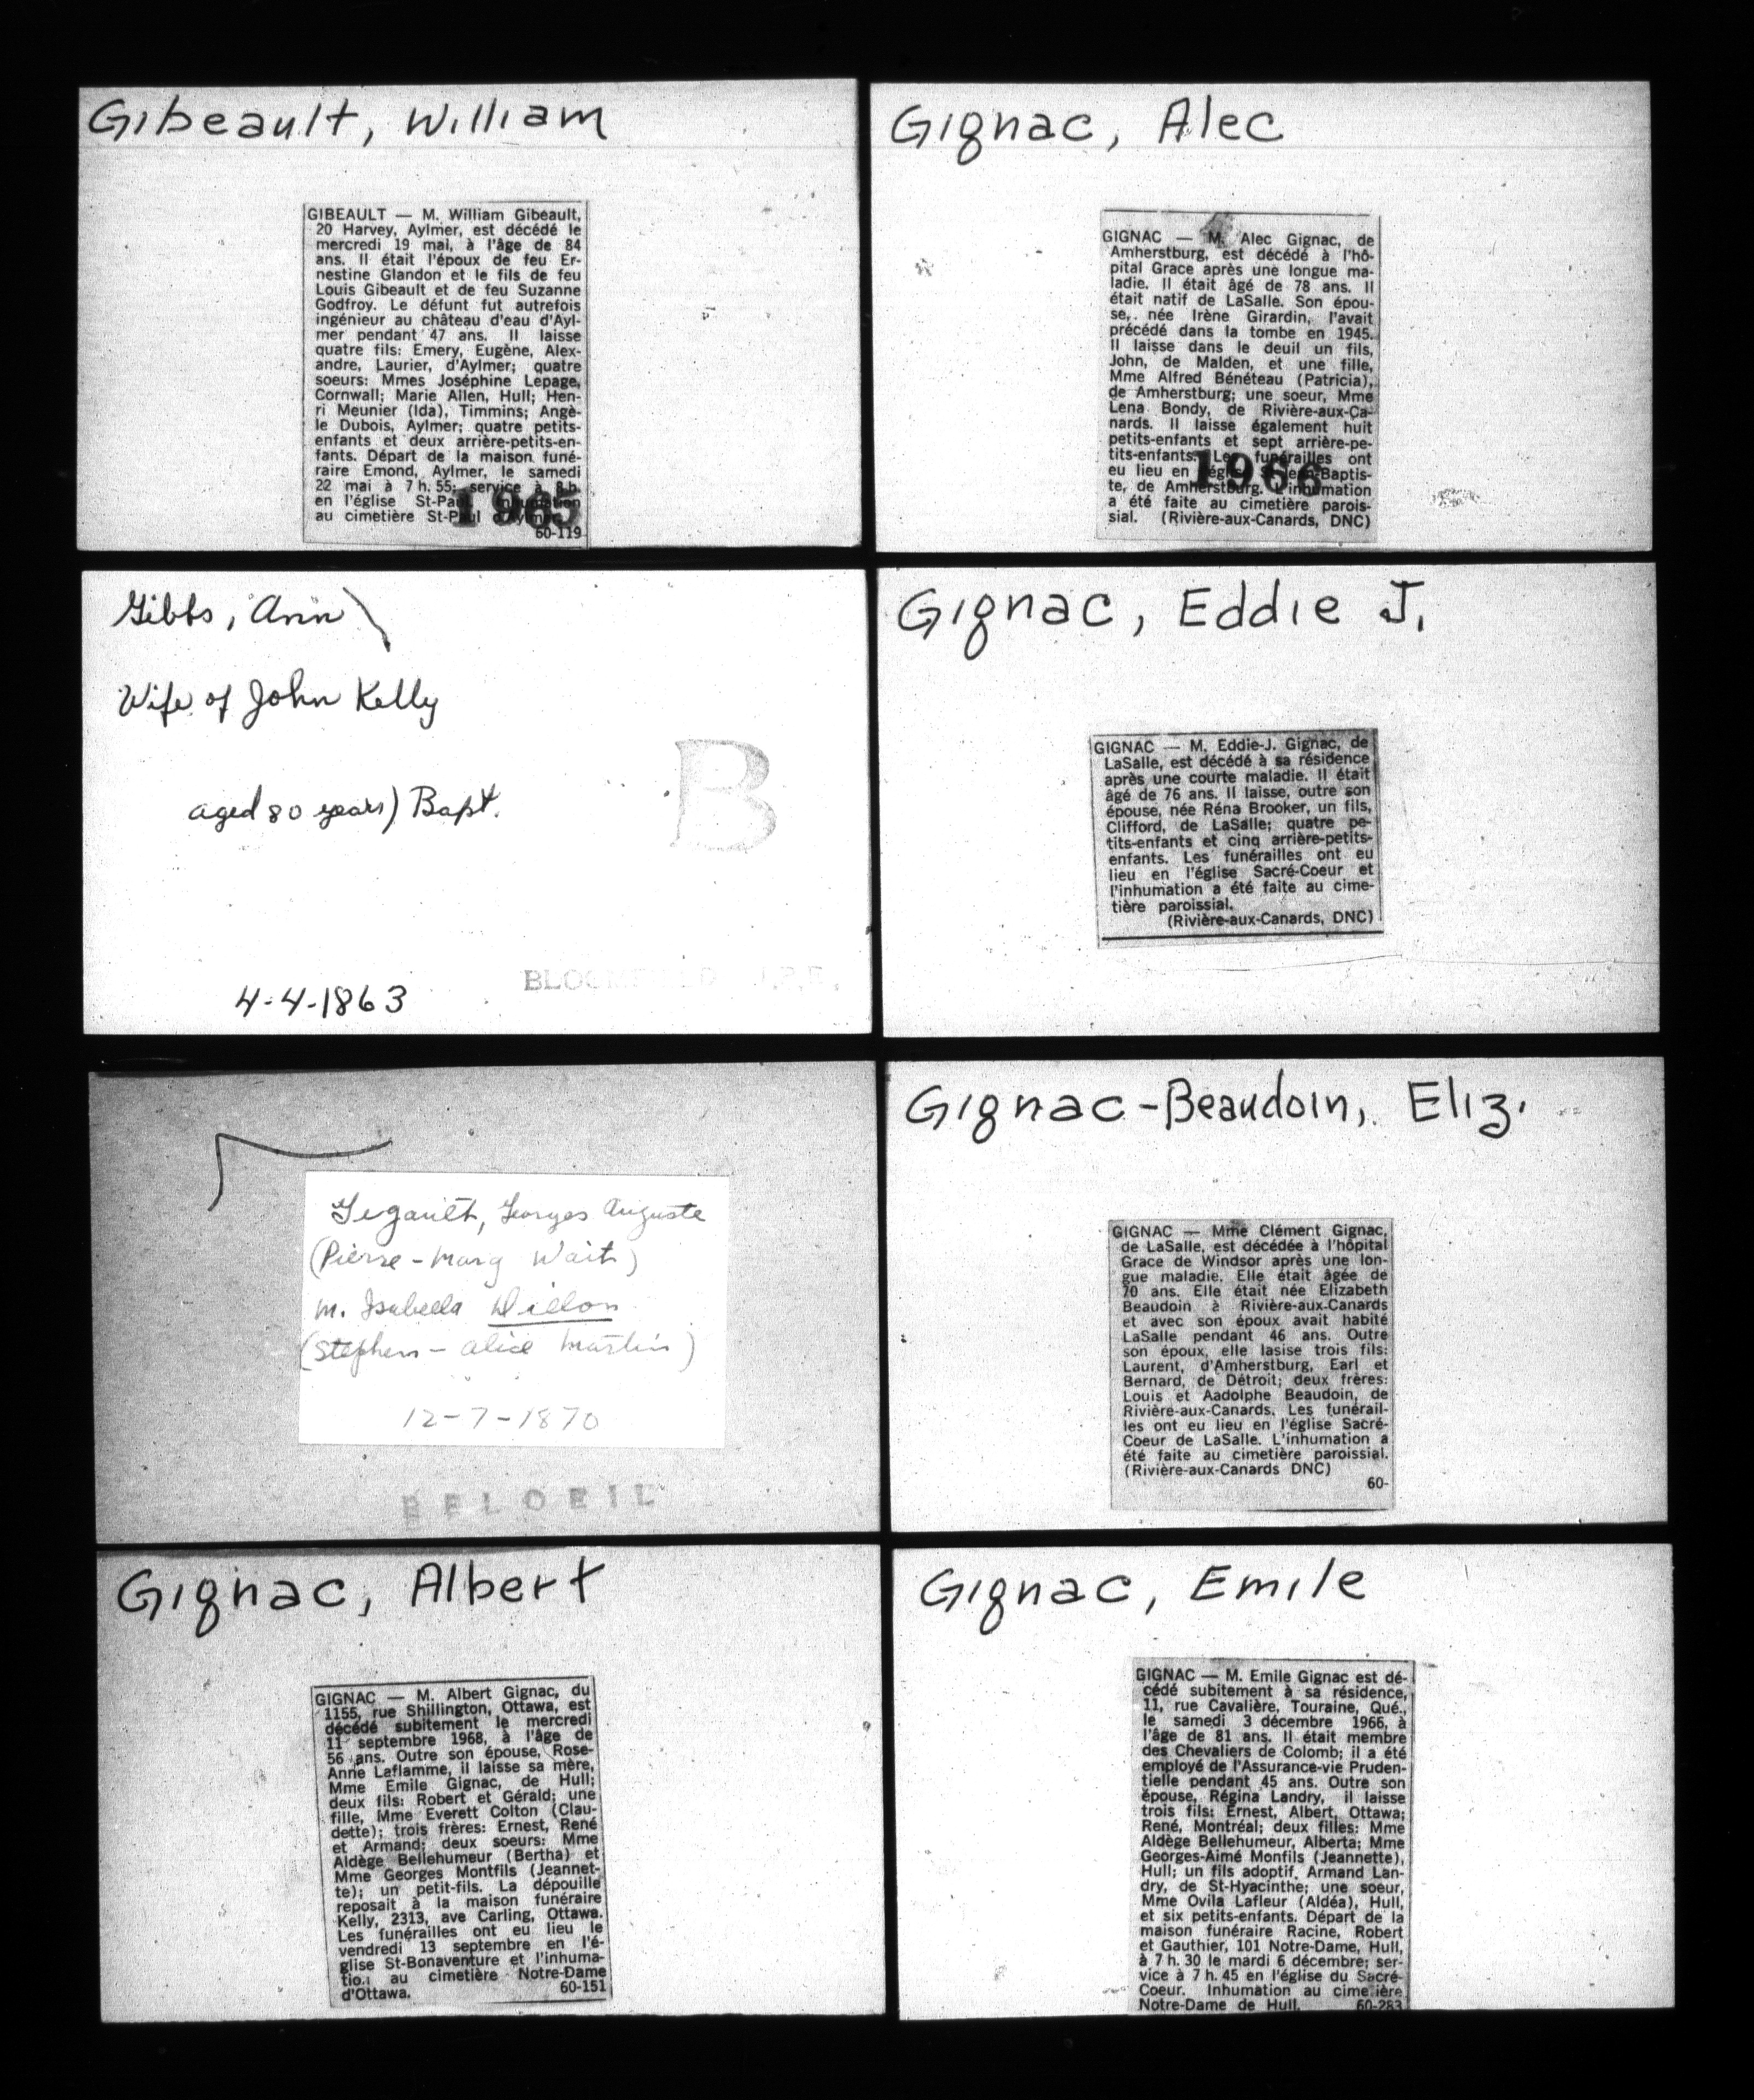 Gibeault, William
GIBEAULT — M. William Gibeault,
20 Harvey, Aylmer, est décédé le
mercredi 19 mai, à l'âge de 84
ans. Il était l'époux de feu Er-
nestine Glandon et le fils de feu
Louis Gibeault et de feu Suzanne
Godfroy. Le défunt fut autrefois
ingénieur au château d'eau d'Ayl-
mer pendant 47 ans. Il laisse
quatre fils: Emery, Eugène, Alex-
andre, Laurier, d'Aylmer; quatre
soeurs: Mmes Joséphine Lepage,
Cornwall; Marie Allen, Hull; Hen-
ri Meunier (Ida), Timmins; Angè-
le Dubois, Aylmer; quatre petits-
enfants et deux arrière-petits-en-
fants. Départ de la maison funé-
raire Emond, Aylmer, le samedi
22 mai à 7 h. 55; service à 8 h.
en l'église St-Paul. Inhumation
au cimetière St-Paul d'Aylmer.
1965
60-119
Gibbs, Ann
Wife of John Kelly
aged 80 years) Bapt.
B
4-4-1863
Gigault, Georges Auguste
(Pierre - Marg Wait)
m. Isabella Dillon
(Stephen - Alice Martin)
12-7-1870
BELOEIL
Gignac, Albert
GIGNAC — M. Albert Gignac, du
1155, rue Shillington, Ottawa, est
décédé subitement le mercredi
11 septembre 1968, à l'âge de
56 ans. Outre son épouse, Rose-
Anne Laflamme, il laisse sa mère,
Mme Emile Gignac, de Hull;
deux fils: Robert et Gérald; une
fille, Mme Everett Colton (Clau-
dette); trois frères: Ernest, René
et Armand; deux soeurs: Mme
Aldège Bellehumeur (Bertha) et
Mme Georges Montfils (Jeannet-
te); un petit-fils. La dépouille
reposait à la maison funéraire
Kelly, 2313, ave Carling, Ottawa.
Les funérailles ont eu lieu le
vendredi 13 septembre en l'é-
glise St-Bonaventure et l'inhuma-
tion au cimetière Notre-Dame
d'Ottawa. 60-151
Gignac, Alec
GIGNAC — M. Alec Gignac, de
Amherstburg, est décédé à l'hô-
pital Grace après une longue ma-
ladie. Il était âgé de 78 ans. Il
était natif de LaSalle. Son épou-
se, née Irène Girardin, l'avait
précédé dans la tombe en 1945.
Il laisse dans le deuil un fils,
John, de Malden, et une fille,
Mme Alfred Bénéteau (Patricia),
de Amherstburg; une soeur, Mme
Lena Bondy, de Rivière-aux-Ca-
nards. Il laisse également huit
petits-enfants et sept arrière-pe-
tits-enfants. Les funérailles ont
eu lieu en l'église St-Jean-Baptis-
te, de Amherstburg. L'inhumation
a été faite au cimetière parois-
sial. (Rivière-aux-Canards, DNC)
1966
Gignac, Eddie J.
GIGNAC — M. Eddie-J. Gignac, de
LaSalle, est décédé à sa résidence
après une courte maladie. Il était
âgé de 76 ans. Il laisse, outre son
épouse, née Réna Brooker, un fils,
Clifford, de LaSalle; quatre pe-
tits-enfants et cinq arrière-petits-
enfants. Les funérailles ont eu
lieu en l'église Sacré-Coeur et
l'inhumation a été faite au cime-
tière paroissial.
(Rivière-aux-Canards, DNC)
Gignac-Beaudoin, Eliz.
GIGNAC — Mme Clément Gignac,
de LaSalle, est décédée à l'hôpital
Grace de Windsor après une lon-
gue maladie. Elle était âgée de
70 ans. Elle était née Elizabeth
Beaudoin à Rivière-aux-Canards
et avec son époux avait habité
LaSalle pendant 46 ans. Outre
son époux, elle lasise trois fils:
Laurent, d'Amherstburg, Earl et
Bernard, de Détroit; deux frères:
Louis et Aadolphe Beaudoin, de
Rivière-aux-Canards. Les funérail-
les ont eu lieu en l'église Sacré-
Coeur de LaSalle. L'inhumation a
été faite au cimetière paroissial.
(Rivière-aux-Canards DNC)
60-
Gignac, Emile
GIGNAC — M. Emile Gignac est dé-
cédé subitement à sa résidence,
11, rue Cavalière, Touraine, Qué.,
le samedi 3 décembre 1966, à
l'âge de 81 ans. Il était membre
des Chevaliers de Colomb; il a été
employé de l'Assurance-vie Pruden-
tielle pendant 45 ans. Outre son
épouse, Régina Landry, il laisse
trois fils: Ernest, Albert, Ottawa;
René, Montréal; deux filles: Mme
Aldège Bellehumeur, Alberta; Mme
Georges-Aimé Monfils (Jeannette),
Hull; un fils adoptif, Armand Lan-
dry, de St-Hyacinthe; une soeur,
Mme Ovila Lafleur (Aldéa), Hull,
et six petits-enfants. Départ de la
maison funéraire Racine, Robert
et Gauthier, 101 Notre-Dame, Hull,
à 7 h. 30 le mardi 6 décembre; ser-
vice à 7 h. 45 en l'église du Sacré-
Coeur. Inhumation au cimetière
Notre-Dame de Hull. 60-283